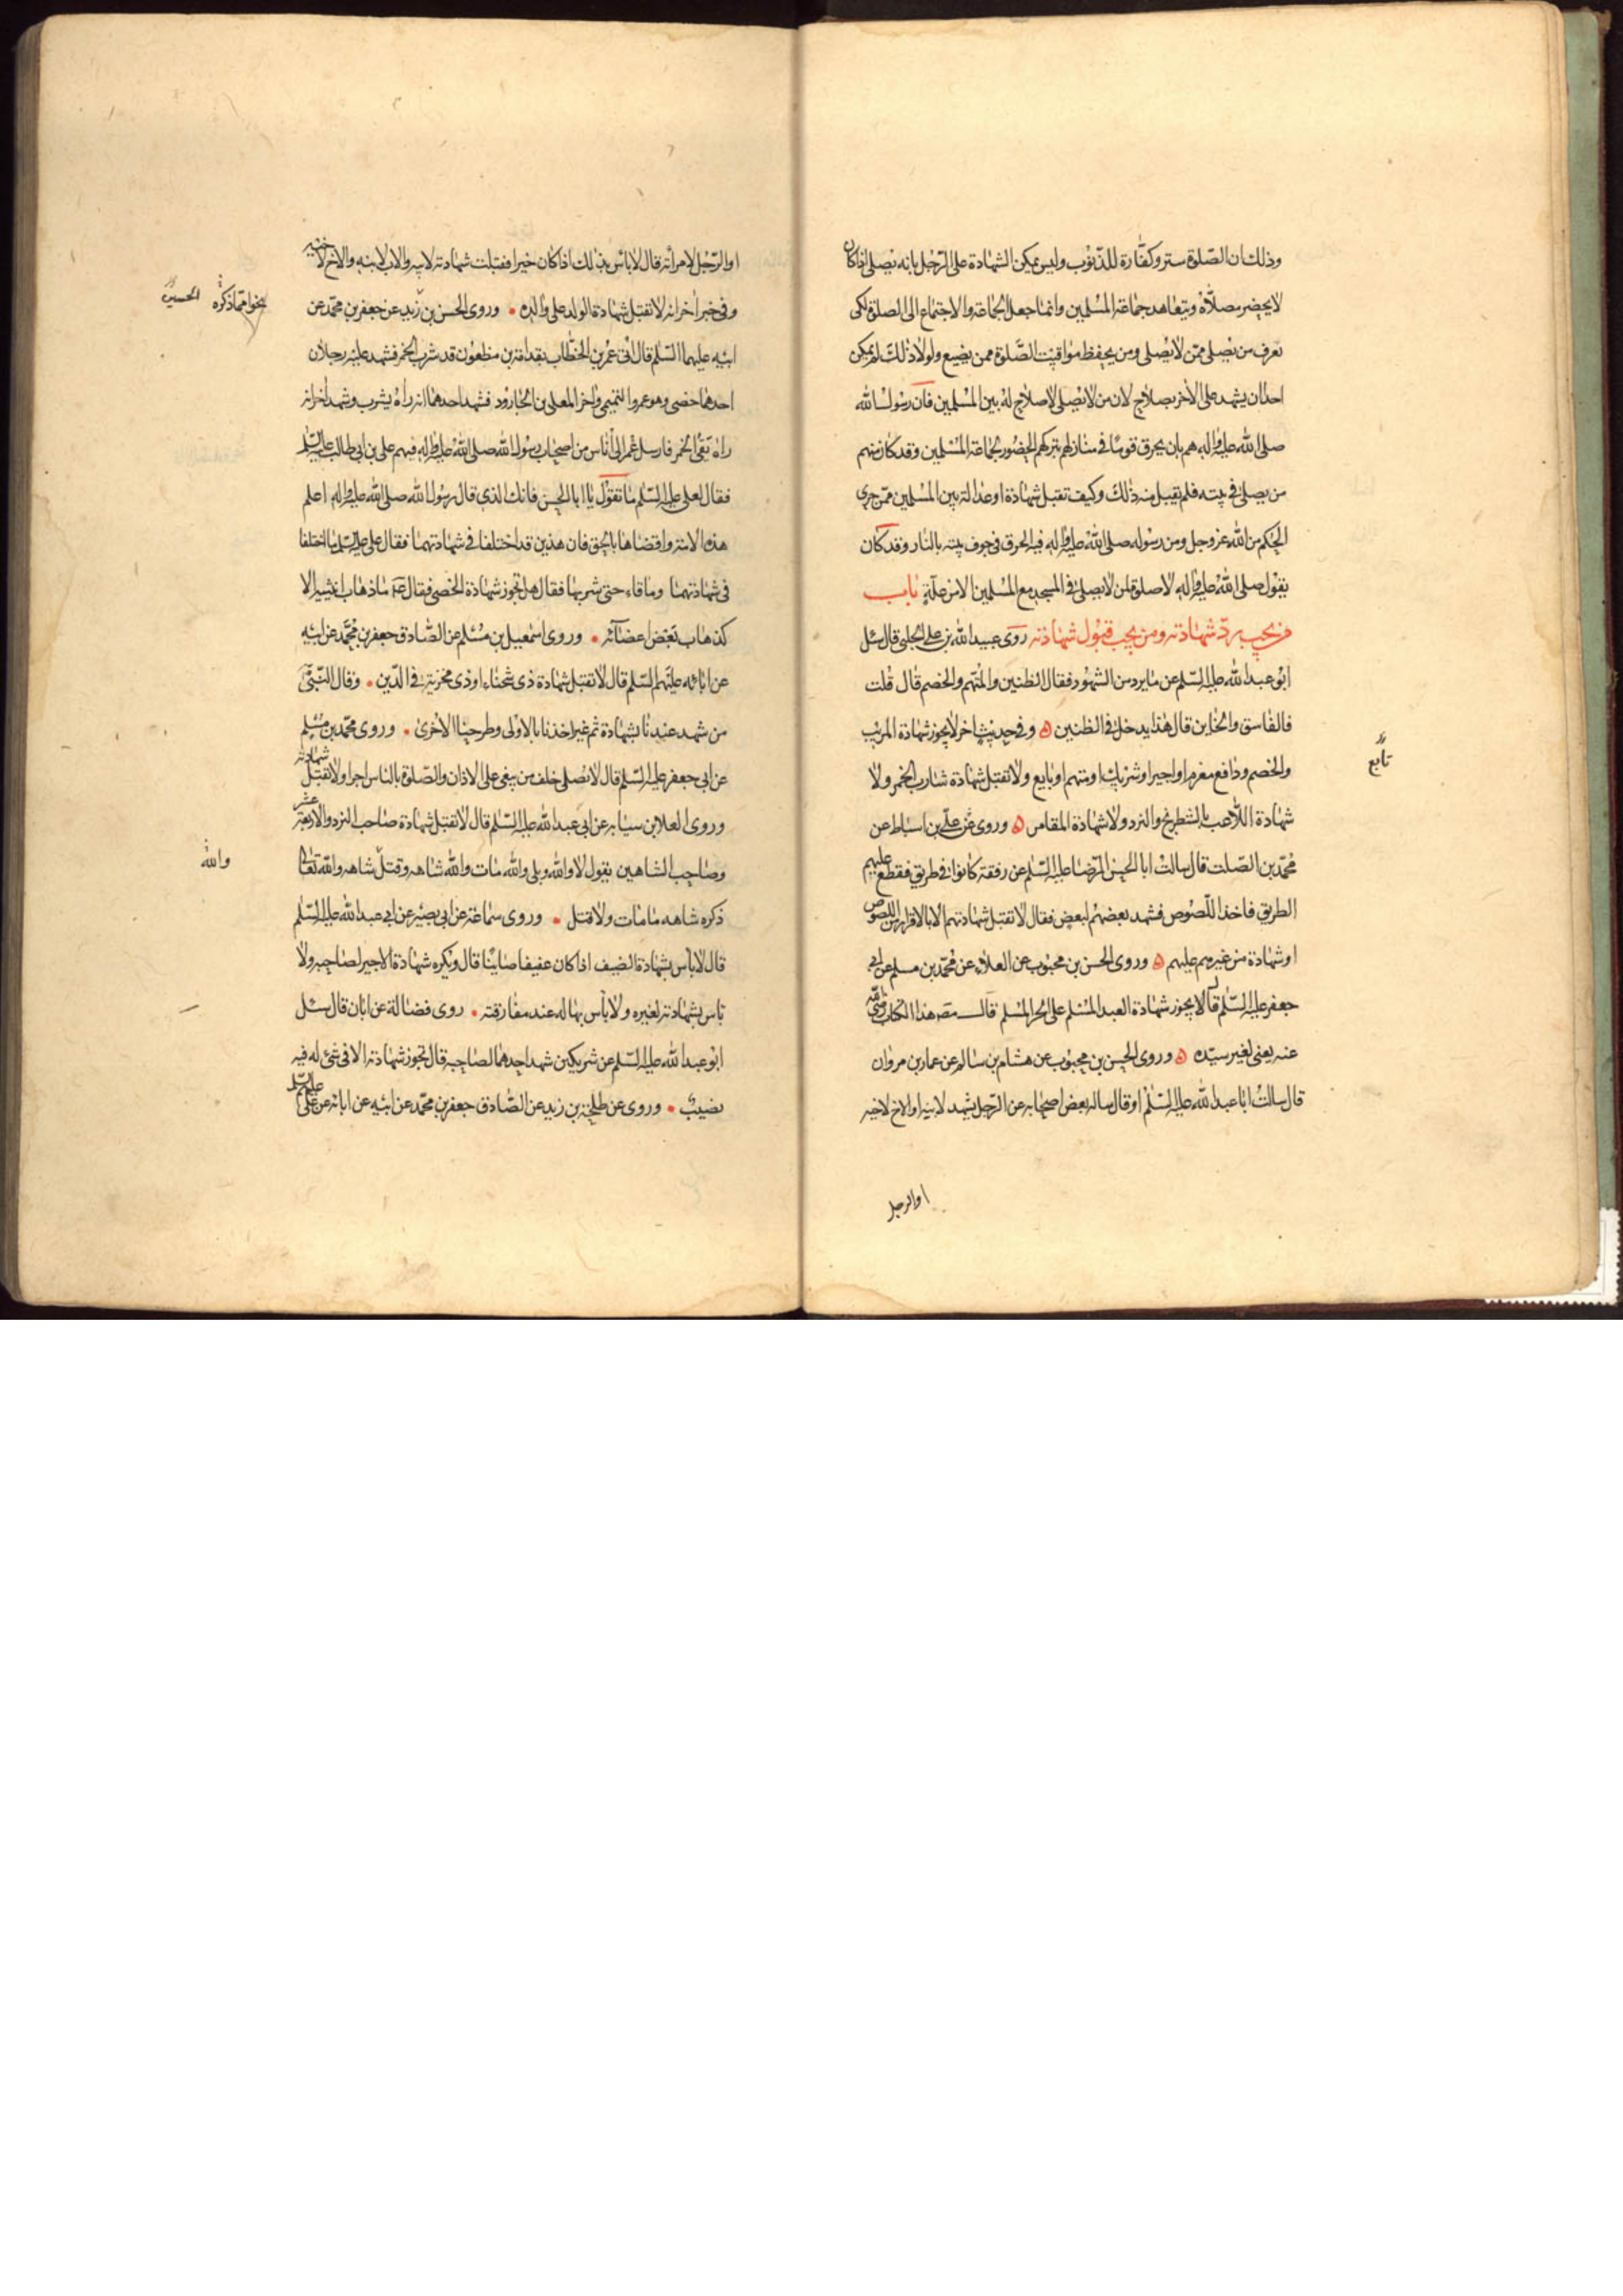 وذلك ان الصّلوة ستر وكفّارة للذّنوب وليس يمكن الشهادة على الرّجل بانه يصلى اذا كان
لا يحضر مصلّاه ويتعاهد جماعة المسلمين وانما جعل الجماعة والاجتماع الى الصلوة لكى
يعرف من يصلى ممّن لا يصلى ومن يحفظ مواقيت الصّلوة ممن يضيع ولولا ذلك لم يمكن
احدا ان يشهد على الاخر بصلاح لان من لا يصلى لا صلاح له بين المسلمين فان رسول الله
صلى الله عليه واله هم بان يحرق قوما فى منازلهم بتركهم الحضور لجماعة المسلمين وقد كان منهم
من يصلى فى بيته فلم يقبل منه ذلك وكيف تقبل شهادة او عدالة بين المسلمين ممّن جرى
الحكم من الله عز وجل ومن رسوله صلى الله عليه واله فيه الحرق فى جوف بيته بالنار وقد كان
يقول صلى الله عليه واله لا صلوة لمن لا يصلى فى المسجد مع المسلمين الا من علّة باب
من يجب ردّ شهادته ومن يجب قبول شهادته روى عبيد الله بن على الحلبى قال سئل
ابو عبد الله عليه السّلم عن ما يرد من الشهور فقال الظنين والمتهم والخصم قال قلت
فالفاسق والخاين قال هذا يدخل فى الظنين ه وفى حديث اخر لا يجوز شهادة المريب
والخصم ودافع مغرم او اجير او شريك او متهم او بايع ولا تقبل شهادة شارب الخمر ولا
تابع
شهادة اللّاعب بالشطرنج والنرد ولا شهادة المقامر ه وروى عن علىّ بن اسباط عن
محمّد بن الصّلت قال سالت ابا الحسن الرّضا عليه السّلم عن رفقة كانوا فى طريق فقطع عليهم
الطريق فاخذ اللّصوص فشهد بعضهم لبعض فقال لا تقبل شهادتهم الا بالاقرار من اللصوص
او شهادة من غيرهم عليهم ه وروى الحسن بن محبوب عن العلاء عن محمّد بن مسلم عن ابى
جعفر عليه السّلم قال لا يجوز شهادة العبد المسلم على الحر المسلم قال مصه هذا الكتاب رضى الله
عنه يعنى لغير سيّده ه وروى الحسن بن محبوب عن هشام بن سالم عن عمار بن مروان
قال سالت ابا عبد الله عليه السّلم او قال ساله بعض اصحابه عن الرّجل يشهد لابيه او الاخ لاخيه
او الرجل
او الرّجل لامرأته قال لا باس بذلك اذا كان خيرا فقبلت شهادته لابيه والاب لابنه والاخ لاخيه
وفى خبر اخر انه لا تقبل شهادة الولد على والده • وروى الحسن بن زيد عن جعفر بن محمّد عن
بنحو ما ذكره الحسين
ابيه عليهما السّلم قال اتى عمر بن الخطّاب بقدامة بن مظعون قد شرب الخمر فشهد عليه رجلان
احدهما خصى وهو عمرو التميمى واخر المعلى بن الجارود فشهد احدهما انه راه يشرب وشهد اخر انه
راه يقئ الخمر فارسل عمر الى أناس من اصحاب رسول الله صلى الله عليه واله فيهم على بن ابى طالب عليه السّلم
فقال لعلى عليه السّلم ما تقول يا ابا الحسن فانك الذى قال رسول الله صلى الله عليه واله اعلم
هذه الامة واقضاها بالحق فان هذين قد اختلفا فى شهادتهما فقال على عليه السّلم ما اختلفا
فى شهادتهما وما قاء حتى شربها فقال هل تجوز شهادة الخصى فقال ع ما ذهاب انثييه الا
كذهاب بعض اعضائه • وروى اسمعيل بن مسلم عن الصّادق جعفر بن محمّد عن ابيه
عن ابائه عليهم السّلم قال لا تقبل شهادة ذى شحناء او ذى مخزية فى الدّين • وقال النّبىّ
من شهد عندنا بشهادة ثم غير اخذنا بالاولى وطرحنا الاخرى • وروى محمّد بن مسلم
عن ابى جعفر عليه السّلم قال لا تصلى خلف من يبغى على الاذان والصّلوة بالناس اجرا ولا تقبل شهادته
وروى العلا بن سيابه عن ابى عبد الله عليه السّلم قال لا تقبل شهادة صاحب النرد والاربعة عشر
وصاحب الشاهين يقول لا والله وبلى والله مات والله شاهه وقتل شاهه والله تعالى
والله
ذكره شاهه ما مات ولا قتل • وروى سماعة عن ابى بصير عن ابى عبد الله عليه السّلم
قال لا باس بشهادة الضيف اذا كان عفيفا صاينا قال ويكره شهادة الاجير لصاحبه ولا
باس بشهادته لغيره ولا باس بها له عند مفارقته • روى فضالة عن ابان قال سئل
ابو عبد الله عليه السّلم عن شريكين شهد احدهما لصاحبه قال تجوز شهادته الا فى شئ له فيه
نصيب • وروى عن طلحة بن زيد عن الصّادق جعفر بن محمّد عن ابيه عن ابائه عن على عليهم السّلم